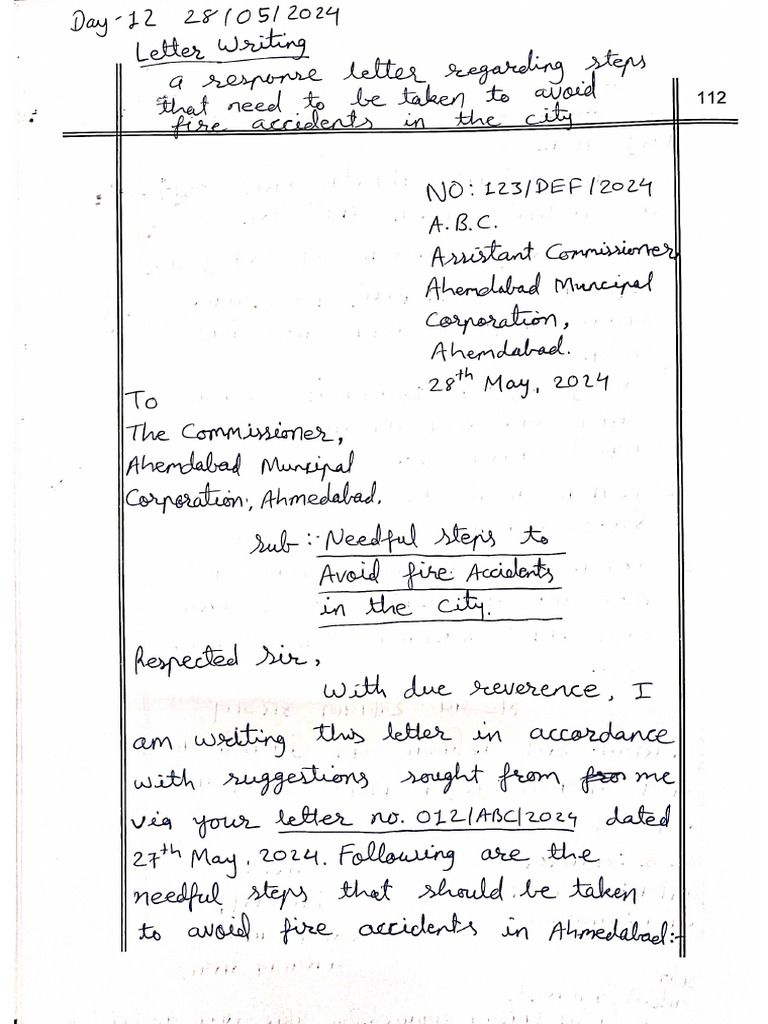 Day-12 28/05/2024
Letter Writing
a response letter regarding steps
that need to be taken to avoid
fire accidents in the city
112
NO: 123/DEF/2024
A.B.C.
Assistant Commissioner,
Ahemdabad Muncipal
Corporation,
Ahemdabad.
28th May, 2024
To
The Commissioner,
Ahemdabad Muncipal
Corporation, Ahmedabad.
Sub:- Needful steps to
Avoid fire Accidents
in the city.
Respected Sir,
With due reverence, I
am writing this letter in accordance
with suggestions sought from me
via your letter no. 012/ABC/2024 dated
27th May, 2024. Following are the
needful steps that should be taken
to avoid fire accidents in Ahmedabad:-